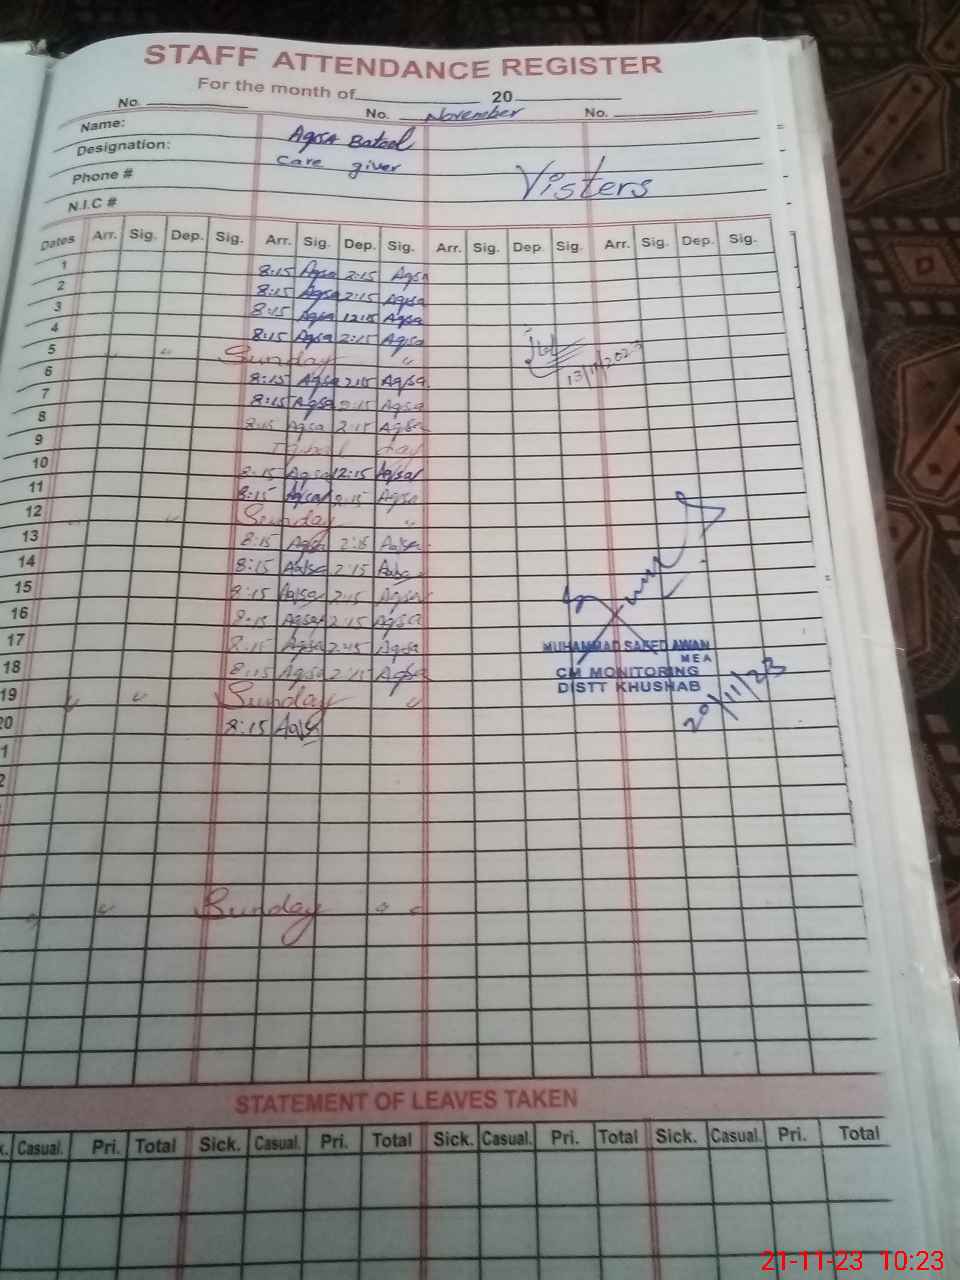 STAFF ATTENDANCE REGISTER
For the month of 20
No. No. November No.
Name: Aqsa Batool
Designation: Care giver
Phone # Visters
N.I.C #
Dates Arr. Sig. Dep. Sig. Arr. Sig. Dep. Sig. Arr. Sig. Dep. Sig. Arr. Sig. Dep. Sig.
1 8:15 Aqsa 2:15 Aqsa
2 8:15 Aqsa 2:15 Aqsa
3 8:15 Aqsa 12:15 Aqsa
4 8:15 Aqsa 2:15 Aqsa
5 Sunday
13/11/2023
6 8:15 Aqsa 2:15 Aqsa
7 8:15 Aqsa 2:15 Aqsa
8 8:15 Aqsa 2:15 Aqsa
9 Iqbal day
10 8:15 Aqsa 12:15 Aqsa
11 8:15 Aqsa 2:15 Aqsa
12 Sunday
13 8:15 Aqsa 2:15 Aqsa
14 8:15 Aqsa 2:15 Aqsa
15 8:15 Aqsa 2:15 Aqsa
16 8:15 Aqsa 2:15 Aqsa
17 8:15 Aqsa 2:15 Aqsa
18 8:15 Aqsa 2:15 Aqsa
MUHAMMAD SAEED AWAN
MEA
CM MONITORING
DISTT KHUSHAB
20/11/23
19 Sunday
20 8:15 Aqsa
1
2
Sunday
STATEMENT OF LEAVES TAKEN
Casual. Pri. Total Sick. Casual. Pri. Total Sick. Casual. Pri. Total Sick. Casual. Pri. Total
21-11-23 10:23